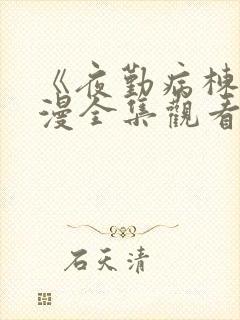 《夜勤病棟
漫全集觀看
石天清